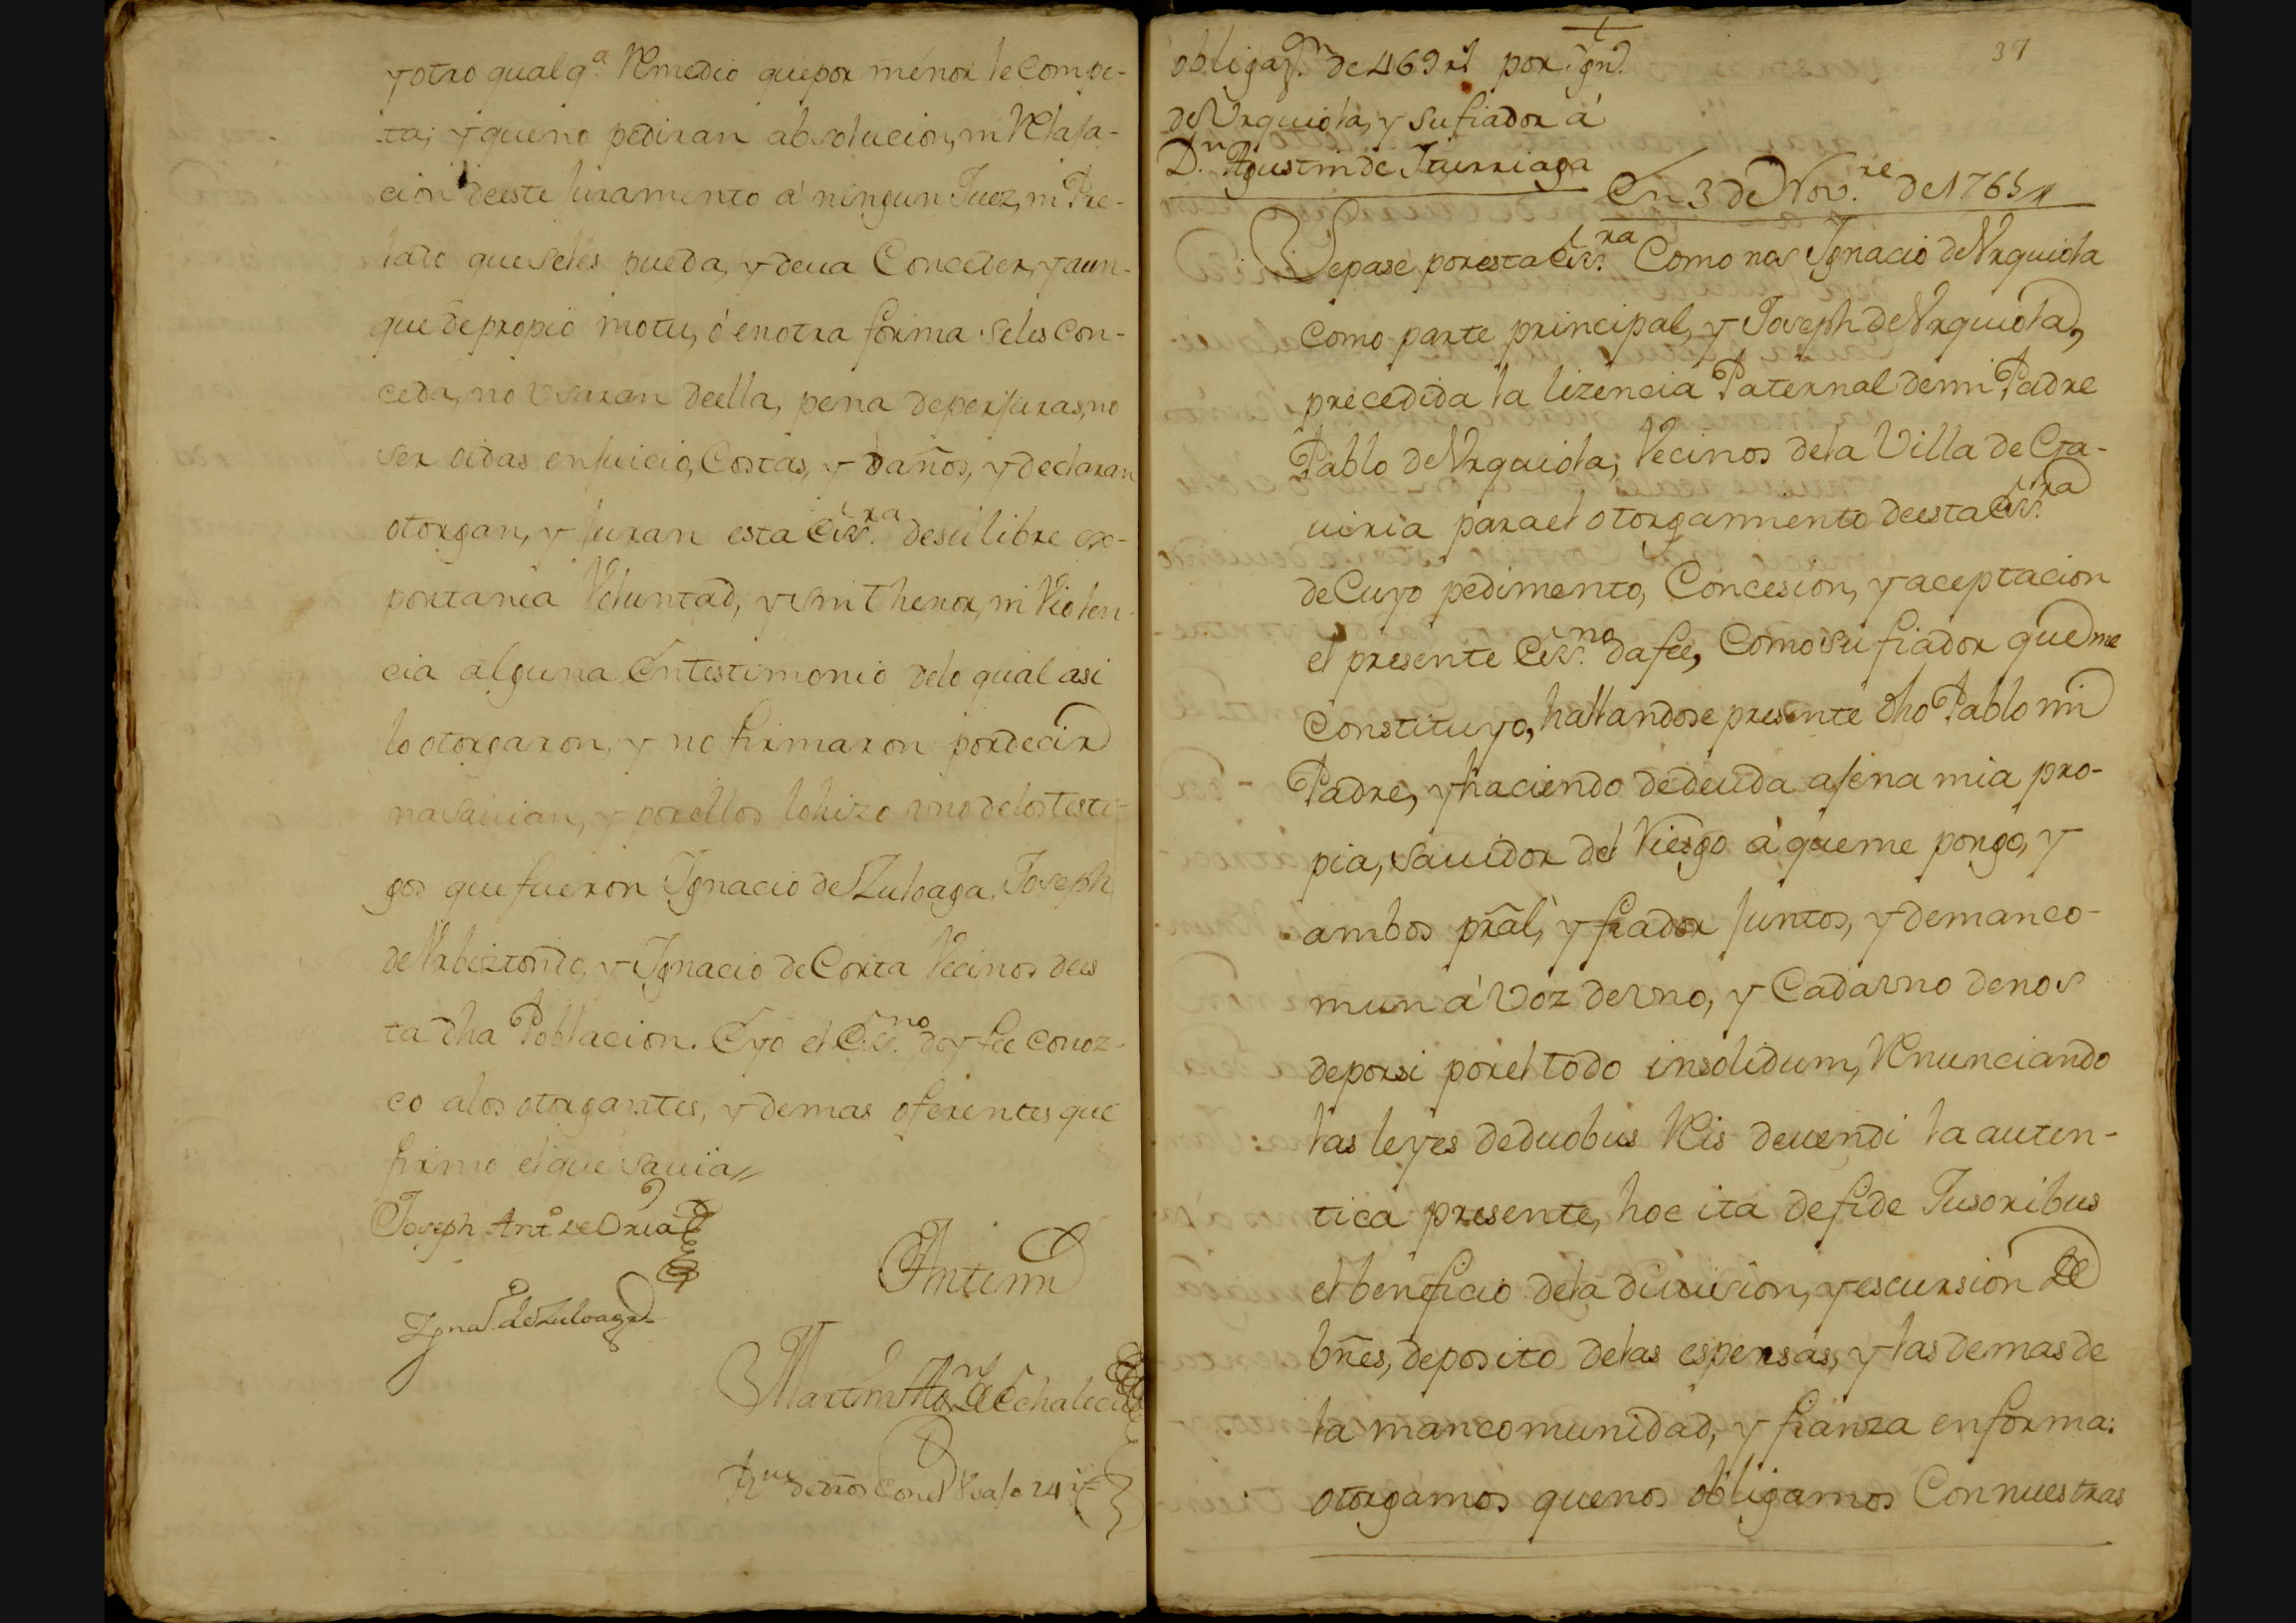 y otro qualq.ª Remedio que por menor le compe-
ta; y que no pediran absolucion, ni Relaja-
cion de este Juramento á ningun Juez, ni Pre-
lado que se les pueda, y deva Conceder, y aun-
que de propio motu, ó en otra forma se les con-
ceda, no vsaran de ella, pena de perjuras, no
ser oidas en Juicio, Costas, y daños, y declaran
otorgan, y Juran esta Es.ra de su libre es-
pontanea Voluntad, y sin thenor, ni Violen-
cia alguna En testimonio de lo qual asi
lo otorgaron, y no firmaron por decir
no savian, y por ellos lo hizo vno de los testi-
gos que fueron Ignacio de Zuloaga, Joseph
de Vrbiztondo, y Ignacio de Corta Vecinos de es
ta dha Poblacion. E yo el Es.no doy fee conoz-
co a los otorgantes, y demas oferentes que
firmo el que savia//
Joseph Ant.º de Oria
Ante mi
Igna.º de Zuloaga
Martin
dros con el 24
37
obligaz.n de 469 rs por Ign.º
de Vrquiola, y su fiador á
D.n Agustin de Iturriaga
En 3 de Nov.re de 1765//
Sepase por esta Es.ra Como nos Ignacio de Vrquiola
como parte principal, y Joseph de Vrquiola,
precedida la lizencia Paternal de mi Padre
Pablo de Vrquiola; Vecinos de la Villa de Ga-
uiria para el otorgamiento de esta Es.ra
de Cuyo pedimento, Concesion, y aceptacion
el presente Es.no da fee, Como su fiador que me
Constituyo, hallandose presente dho Pablo mi
Padre, y haciendo de deuda ajena mia pro-
pia, sauidor del Riesgo á que me pongo, y
ambos prãl, y fiador Juntos, y de manco-
mun á Voz de vno, y Cada vno de nos
de por si por el todo insolidum, Renunciando
las leyes de duobus Reis deuendi la auten-
tica presente, hoc ita de fide Jusoribus
el beneficio de la diuision, y escursion de
bñes, deposito de las espensas, y las demas de
la mancomunidad, y fianza en forma:
otorgamos que nos obligamos Con nuestras